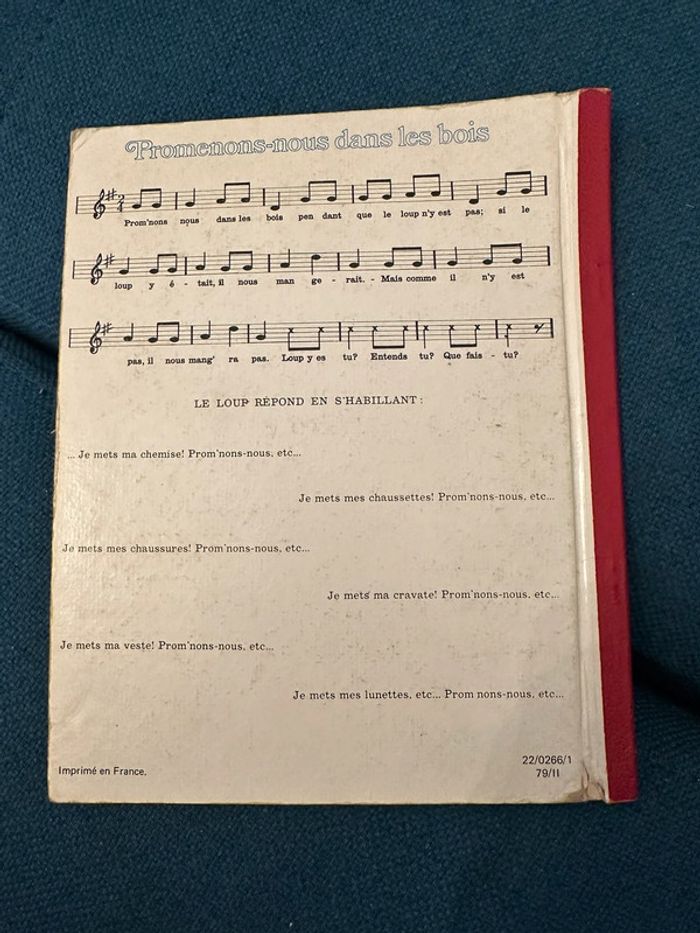 Promenons-nous dans les bois
2
4
Prom'nons nous dans les bois pen dant que le loup n'y est pas; si le
loup y é - tait, il nous man ge - rait. - Mais comme il n'y est
pas, il nous mang' ra pas. Loup y es tu? Entends tu? Que fais - tu?
LE LOUP RÉPOND EN S'HABILLANT :
... Je mets ma chemise! Prom'nons-nous, etc...
Je mets mes chaussettes! Prom'nons-nous, etc...
Je mets mes chaussures! Prom'nons-nous, etc...
Je mets ma cravate! Prom'nons-nous, etc...
Je mets ma veste! Prom'nons-nous, etc...
Je mets mes lunettes, etc... Prom nons-nous, etc...
Imprimé en France.
22/0266/1
79/II